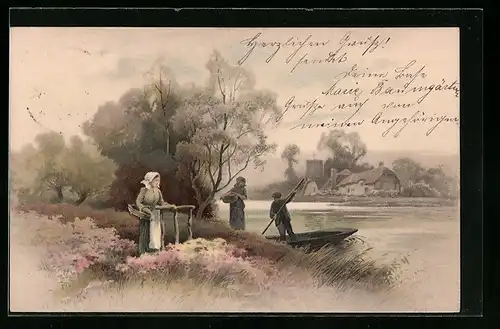 Herzlichen Gruß!
sendet
Deine Base
Marie Baumgärtner
Grüße auch von
meinen Angehörigen